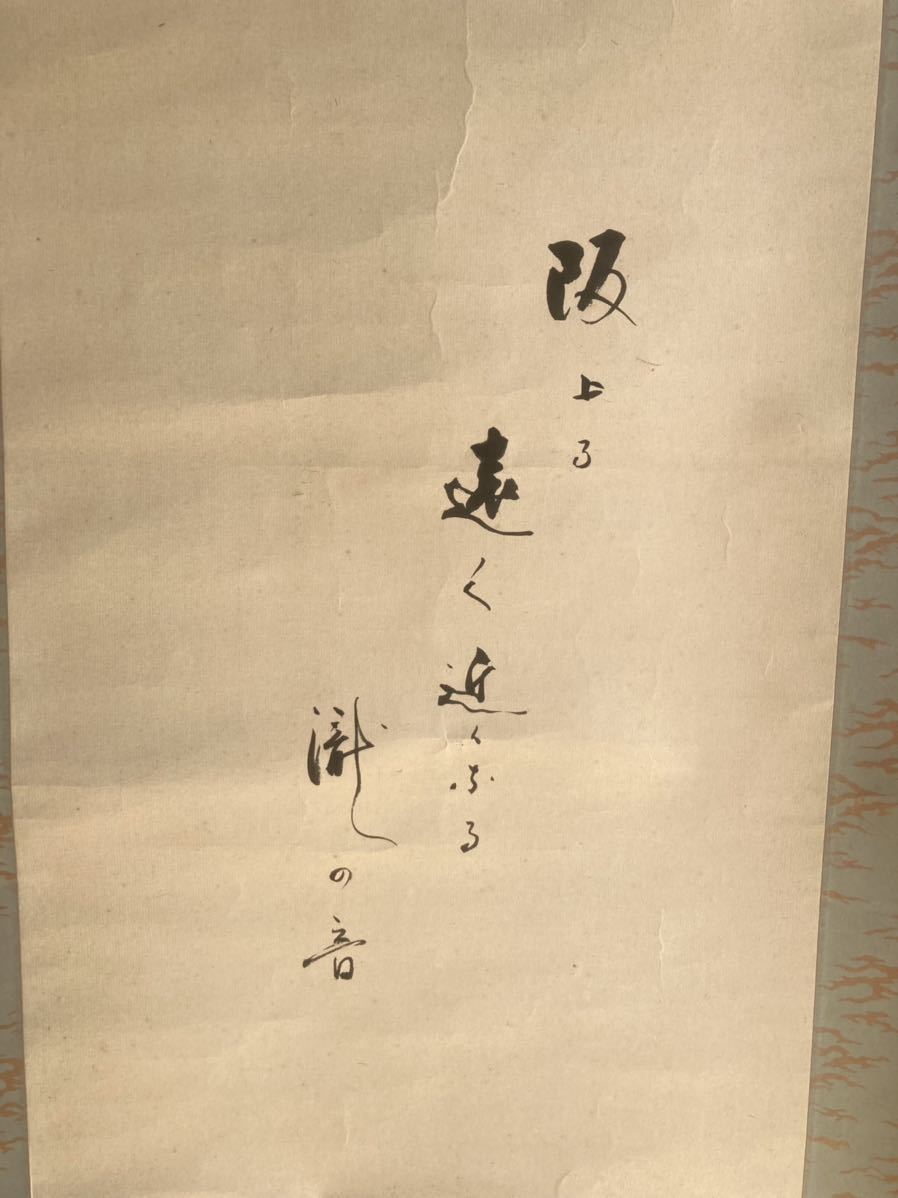 阪上る
遠く近くなる
瀧の音